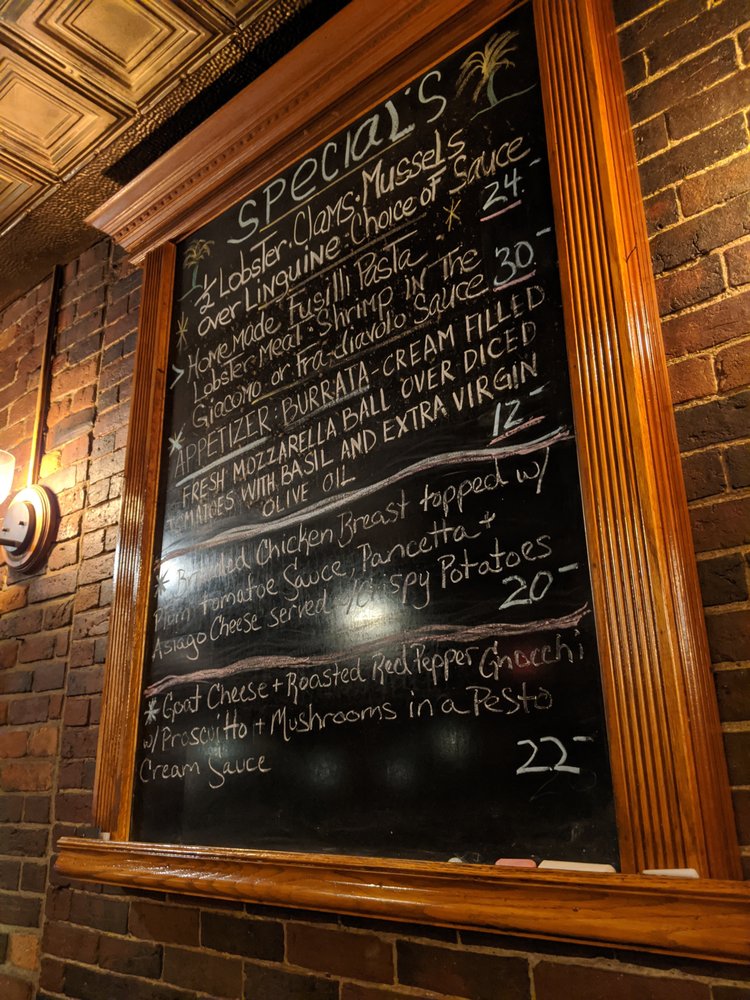 SPECIAL'S
½ Lobster · Clams · Mussels
over Linguine : Choice of Sauce
24.-
* Home made Fusilli Pasta *
> Lobster Meat · Shrimp in The
Giacomo or Fra-diavolo Sauce 30.-
* APPETIZER : BURRATA - CREAM FILLED
FRESH MOZZARELLA BALL OVER DICED
TOMATOES WITH BASIL AND EXTRA VIRGIN
OLIVE OIL 12.-
* Breaded Chicken Breast topped w/
Plum tomatoe Sauce, Pancetta +
Asiago Cheese served w/crispy Potatoes
20-
* Goat Cheese + Roasted Red Pepper Gnocchi
w/ Proscuitto + Mushrooms in a Pesto
Cream Sauce 22-